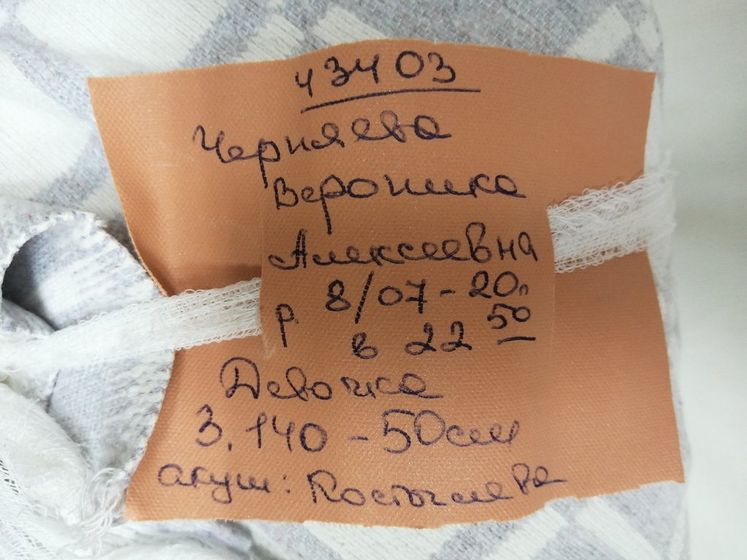 43403
Черняева
Вероника
Алексеевна
р 8/07-20г
в 22 50
Девочка
3.140-50см
акуш: